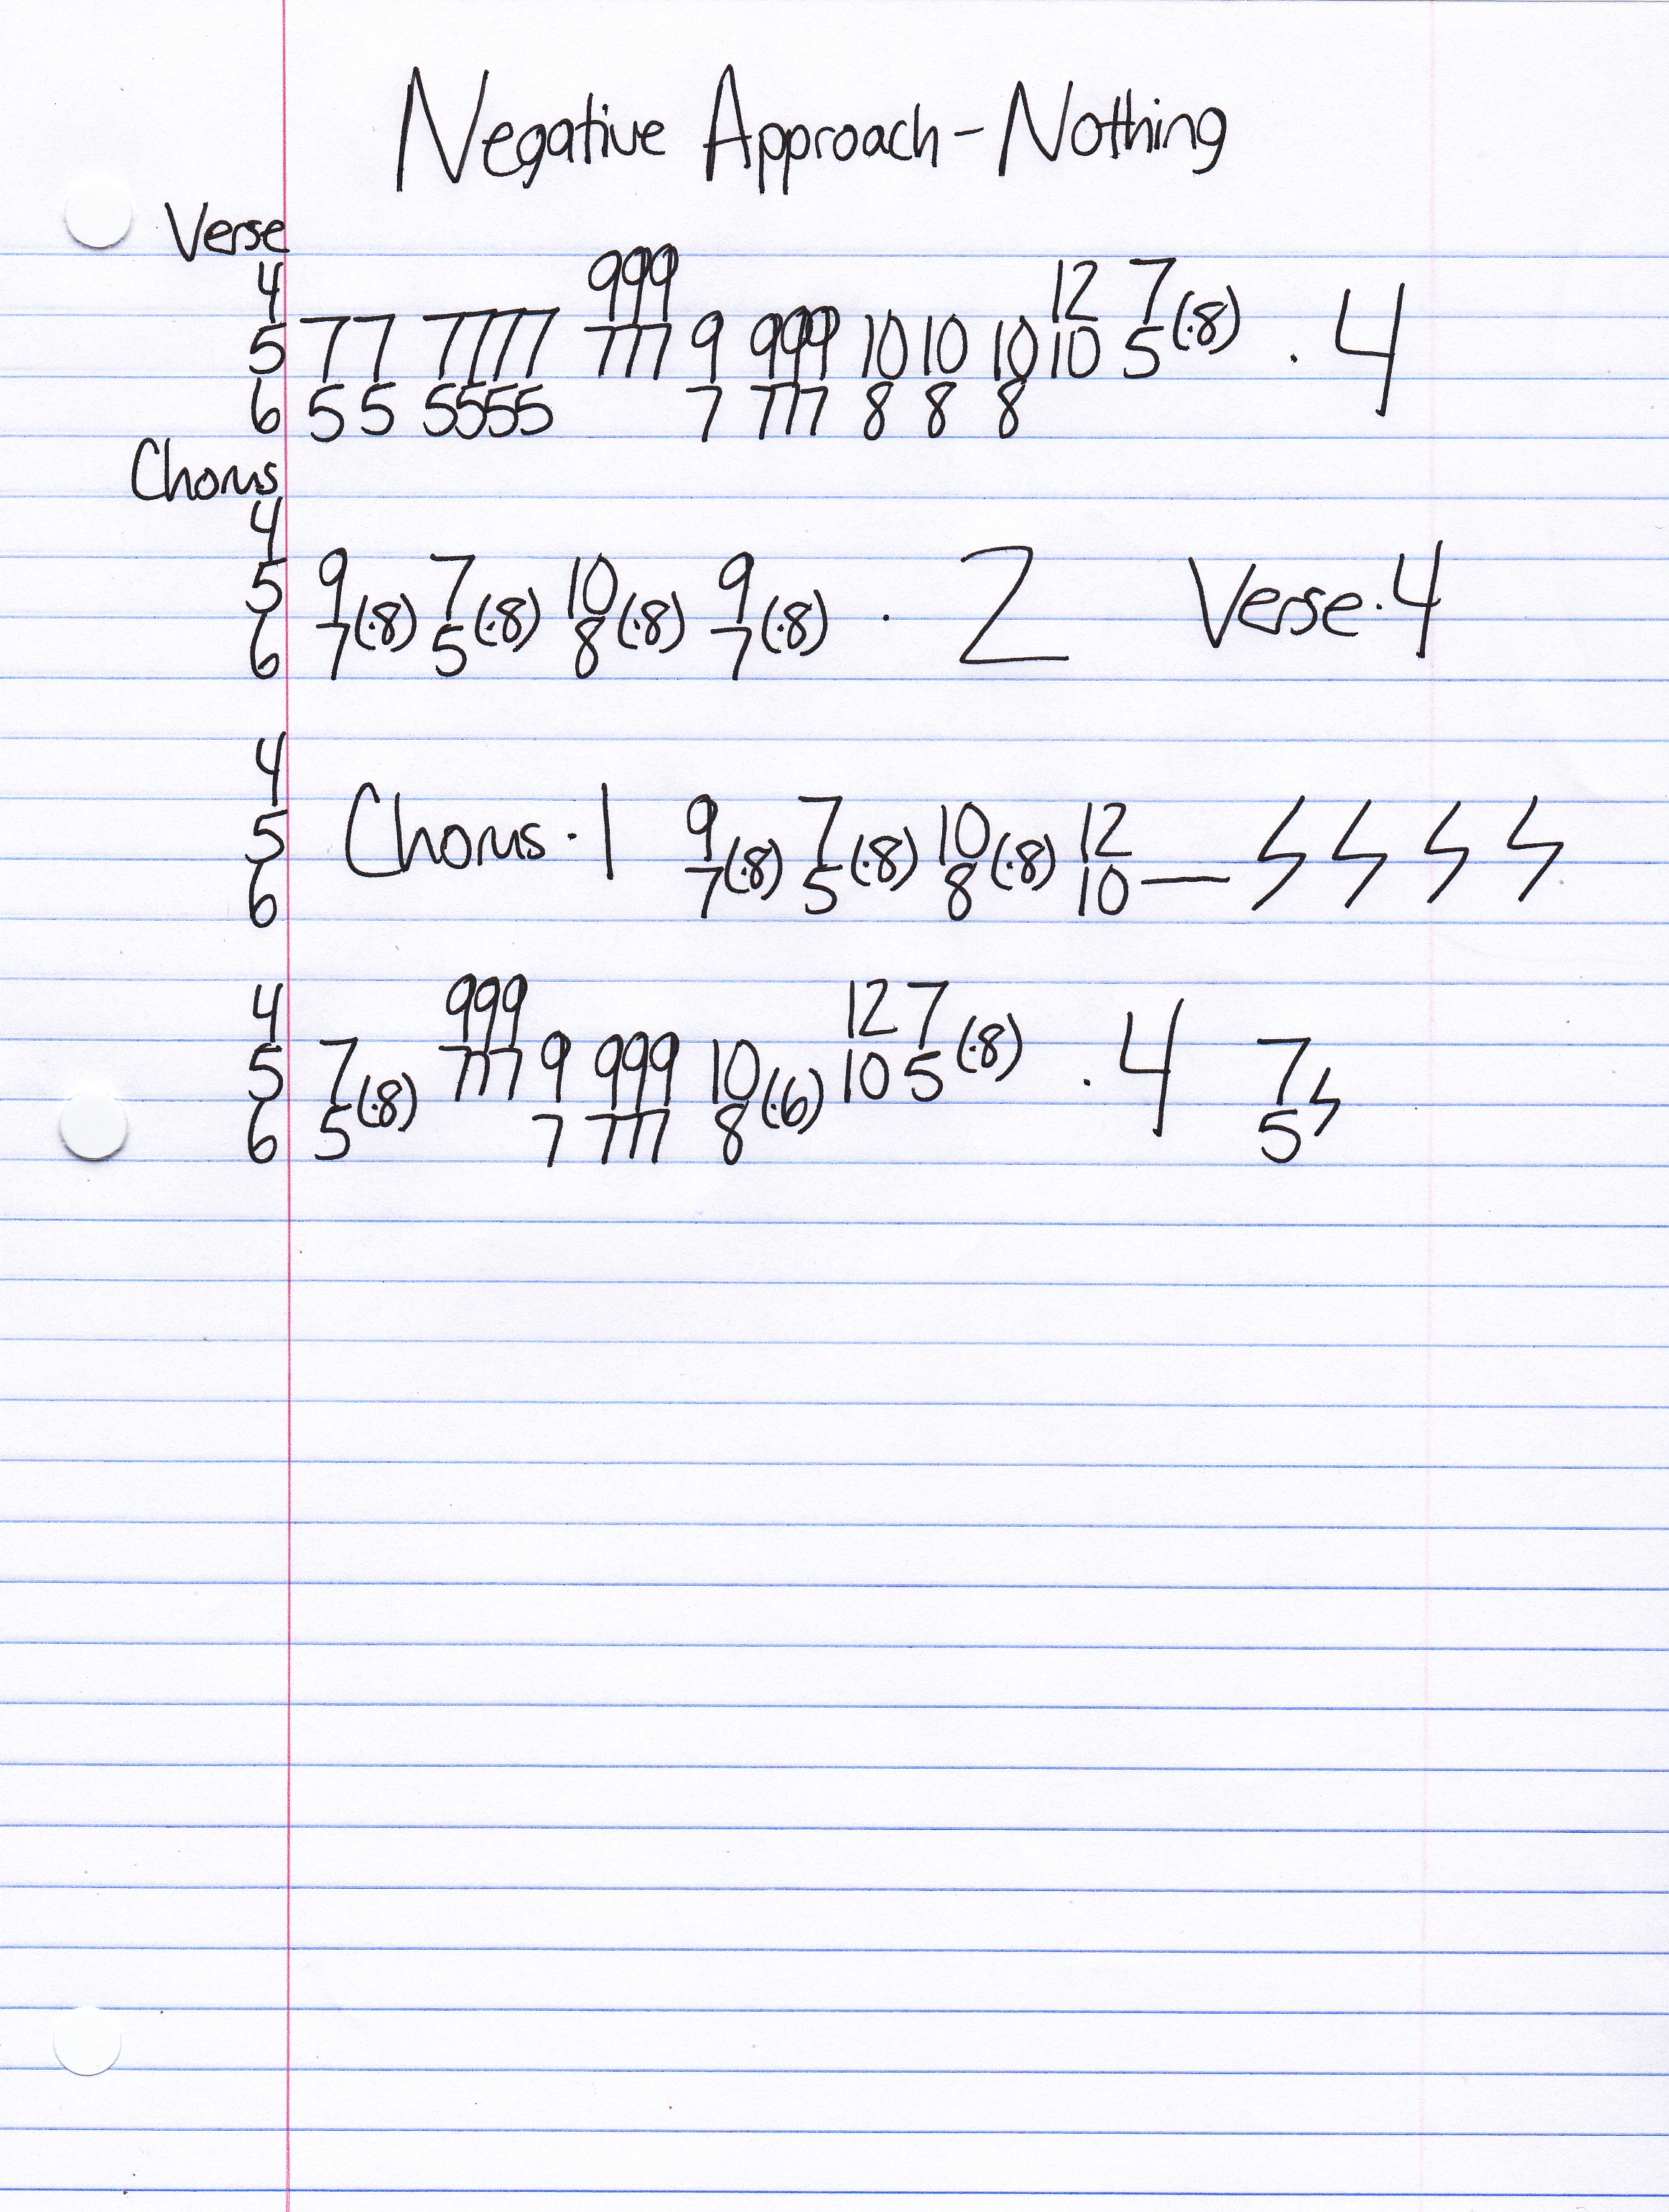 Negative Approach - Nothing
Verse
4 999 12 7
5 77 7777 777 9 999 10 10 10 10 5(·8) · 4
6 55 5555 7 777 8 8 8
Chorus
4
5 9 7 10 9
6 7(·8) 5(·8) 8(·8) 7(·8) · 2 Verse·4
4
5 Chorus·1 9 7 10 12
6 7(·8) 5(·8) 8(·8) 10—
4 999 12 7
5 7 777 9 999 10 10 5(·8) · 4 7
6 5(·8) 7 777 8(·6) 5